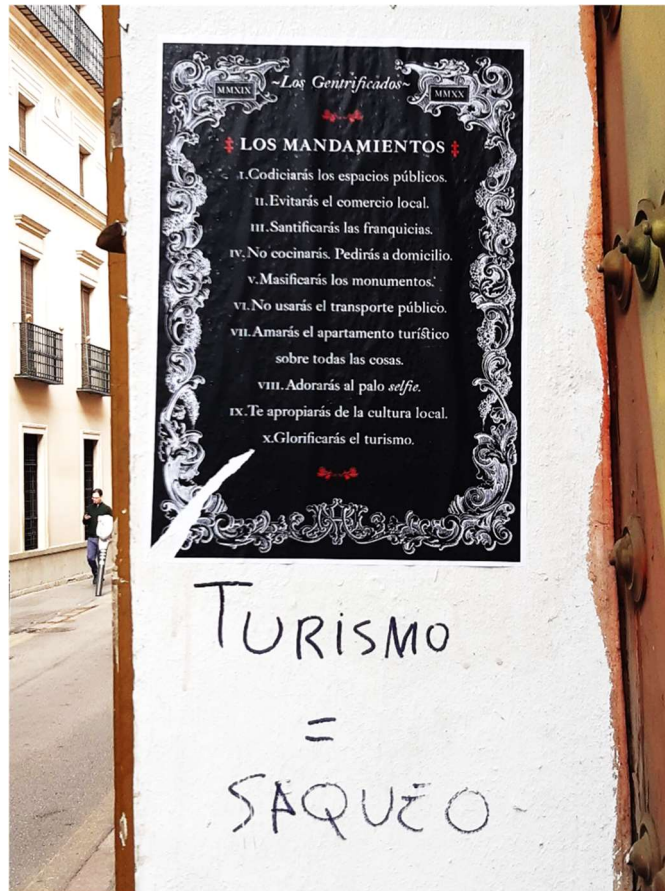 MMXIX
~Los Gentrificados~
MMXX
LOS MANDAMIENTOS
I.Codiciarás los espacios públicos.
II.Evitarás el comercio local.
III.Santificarás las franquicias.
IV.No cocinarás. Pedirás a domicilio.
V.Masificarás los monumentos.
VI.No usarás el transporte público.
VII.Amarás el apartamento turístico
sobre todas las cosas.
VIII.Adorarás al palo selfie.
IX.Te apropiarás de la cultura local.
X.Glorificarás el turismo.
TURISMO
=
SAQUEO